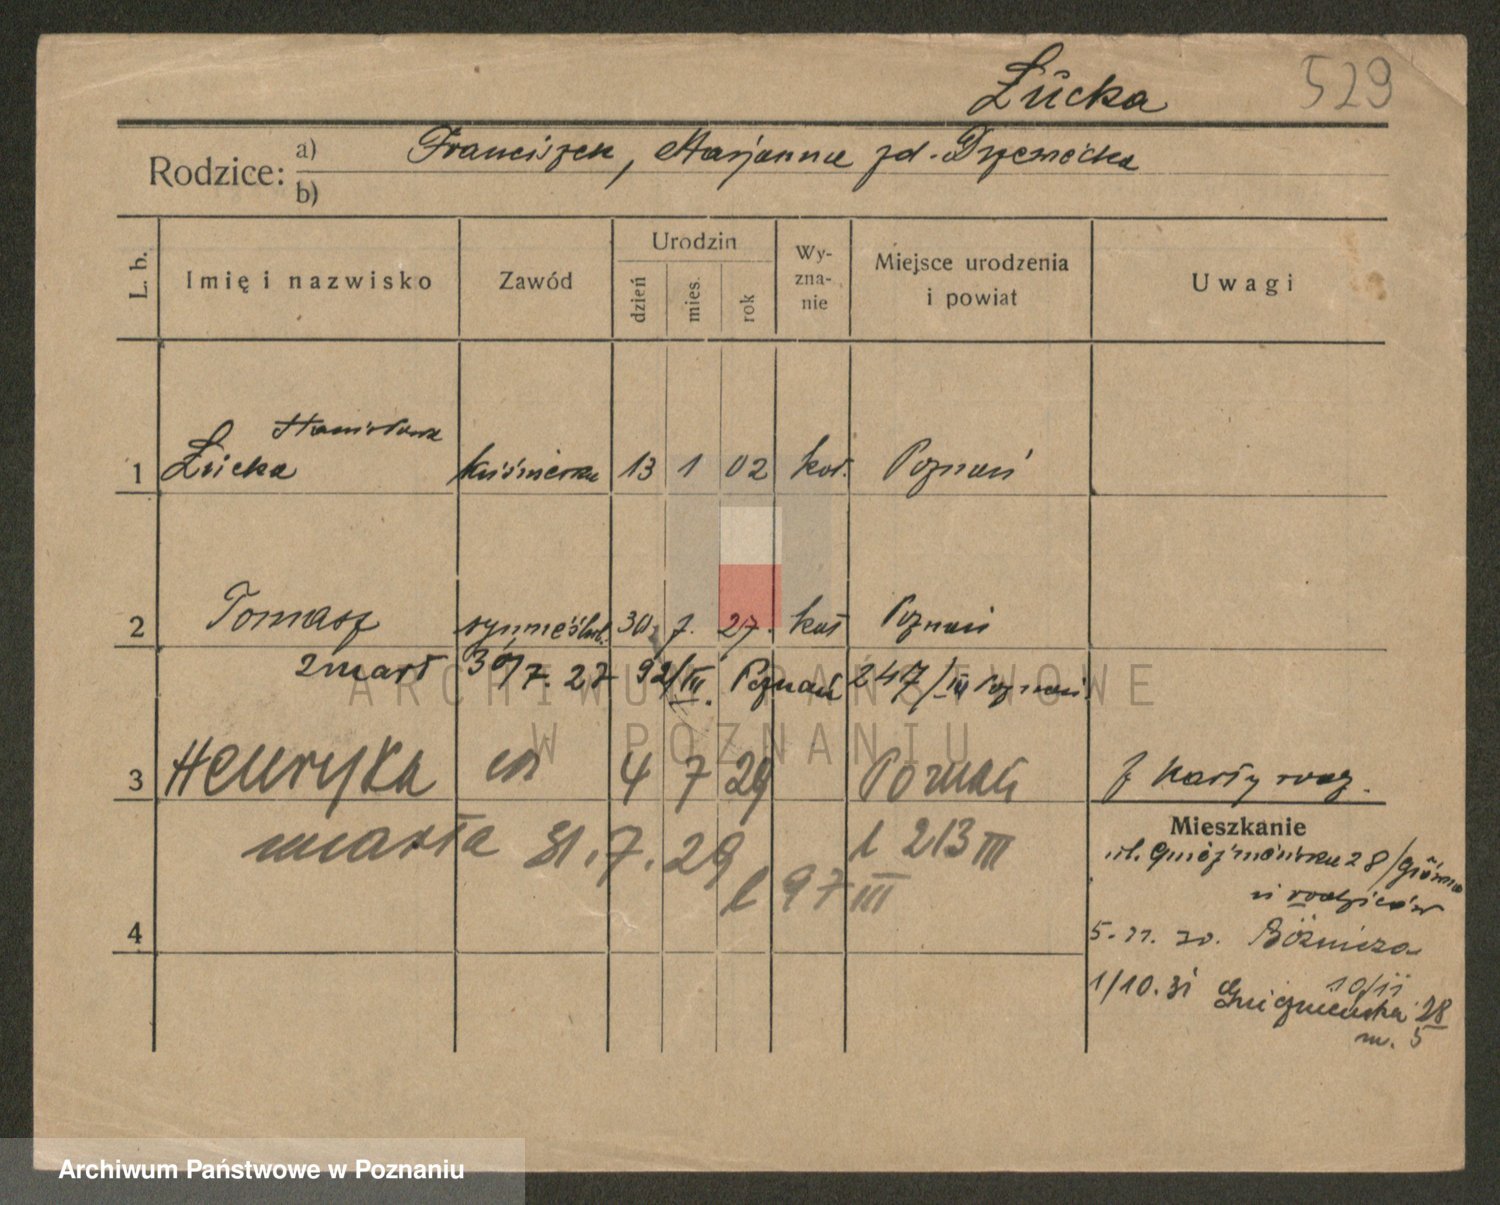 Łucka 529
Rodzice: a) Franciszek, Marjanna zd.
b)
L. b. Imię i nazwisko Zawód Urodzin dzień mies. rok Wy-zna-nie Miejsce urodzenia i powiat Uwagi
Stanisława
1 Łucka kuśnierka 13 1 02 kat. Poznań
2 Tomasz syn nieślub. 30. 7. 27. kat Poznań
zmarł 30/7. 27 92/III. Poznań 247/III Poznań
3 Henryka 4 7 29 Poznań z karty rodz.
marła 31.7.29 l 213 III
l 97 III
Mieszkanie
ul. Gnieźnieńska 28/Główna
u rodziców
4
5. 11. 30. Bóżnicza
10/11
1/10.31 Gnieźnieńska 28
m. 5
ARCHIWUM PAŃSTWOWE
W POZNANIU
Archiwum Państwowe w Poznaniu